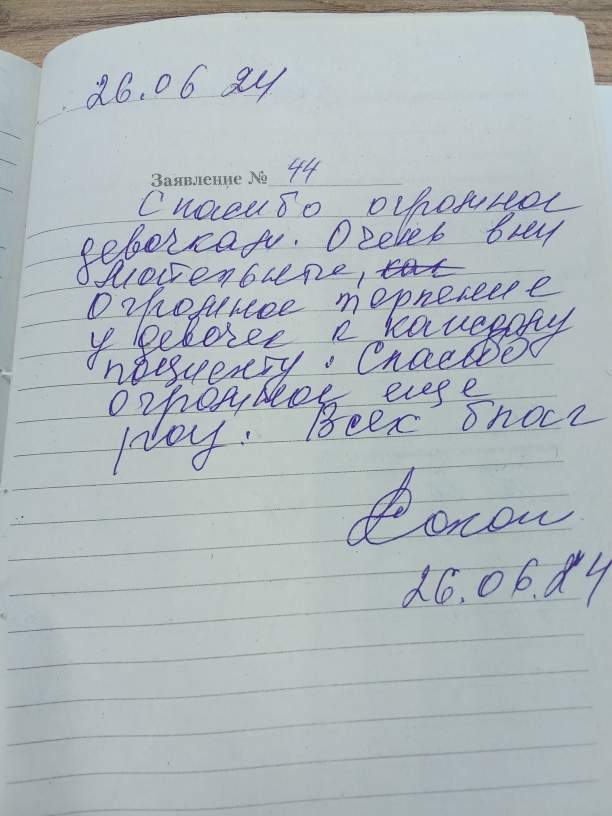 26.06 24
Заявление № 44
Спасибо огромное
девочкам. Очень вни
мательные, как
огромное терпение
у девочек к каждому
пациенту. Спасибо
огромное еще
раз. Всех благ
26.06.24